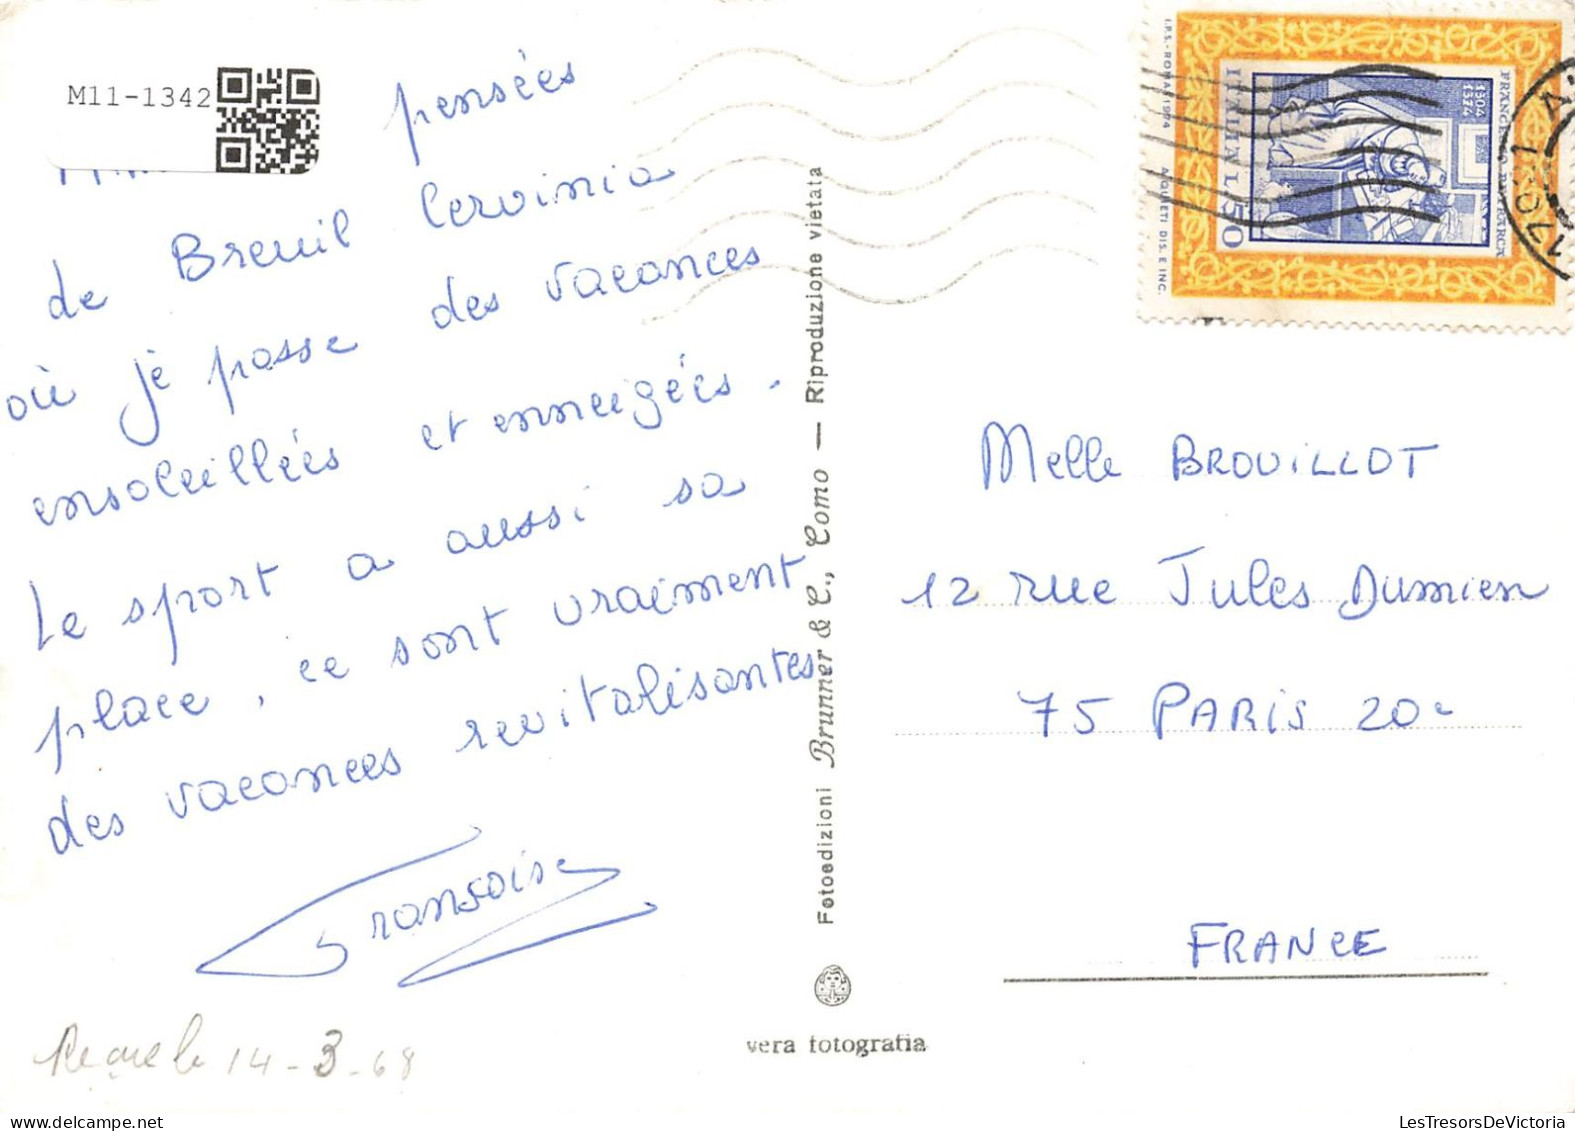 M11-1342
pensées
de Breuil Cervinia
où je passe des vacances
ensoleillées et enneigées.
Le sport a aussi sa
place, ce sont vraiment
des vacances revitalisantes.
Fransoise
14-3-68
Fotoedizioni Brunner & C., Como — Riproduzione vietata
vera fotografia
I.P.S.-ROMA-1974 A.QUIETI DIS. E INC.
ITALIA L.50
1304
1374
Melle BROUILLOT
12 rue Jules Dumien
75 PARIS 20e
FRANCE
LesTresorsDeVictoria